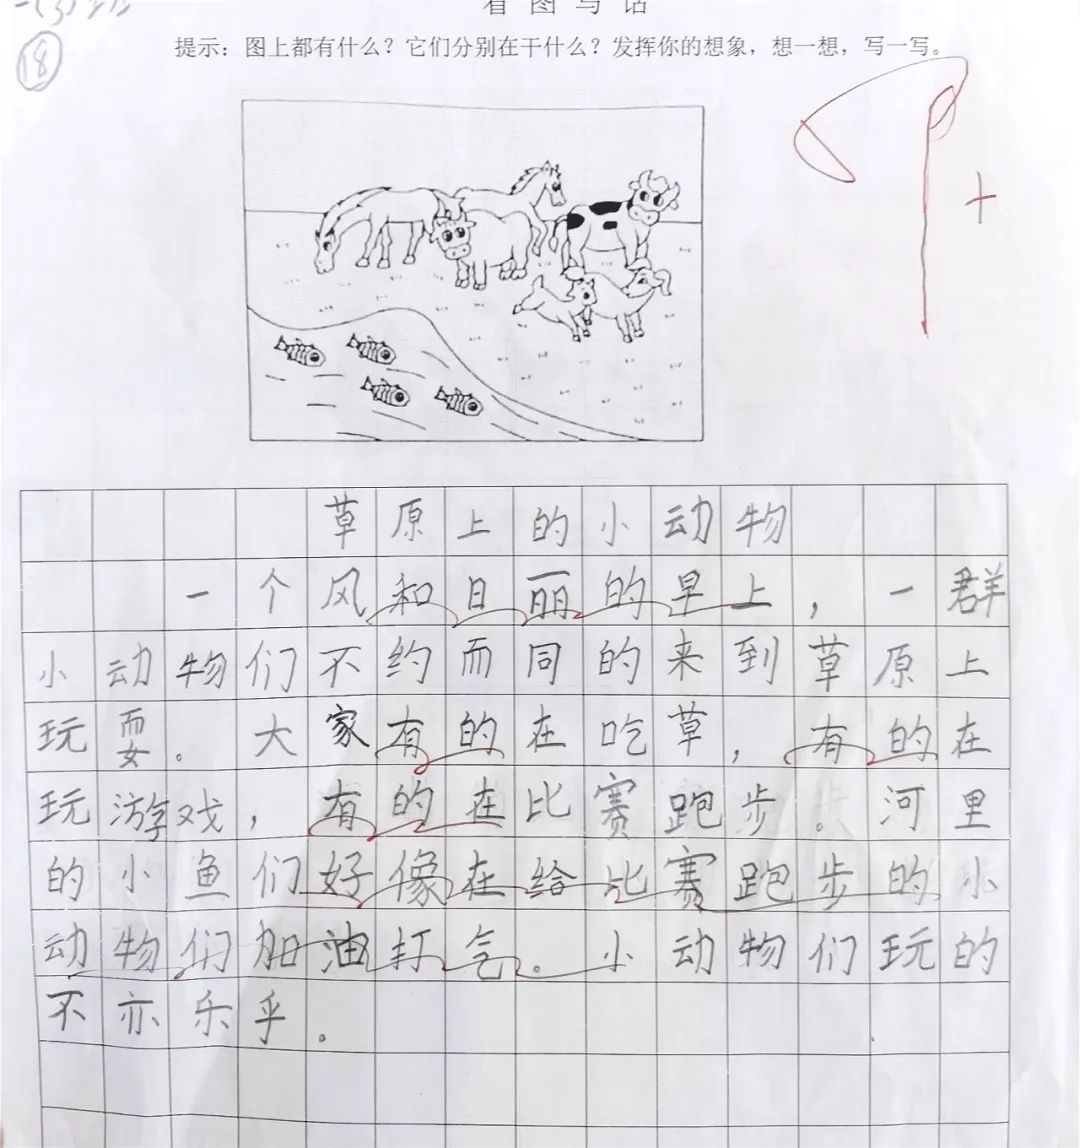 看图写话
提示：图上都有什么？它们分别在干什么？发挥你的想象，想一想，写一写。
18
草原上的小动物
一个风和日丽的早上，一群
小动物们不约而同的来到草原上
玩耍。大家有的在吃草，有的在
玩游戏，有的在比赛跑步。河里
的小鱼们好像在给比赛跑步的小
动物们加油打气。小动物们玩的
不亦乐乎。